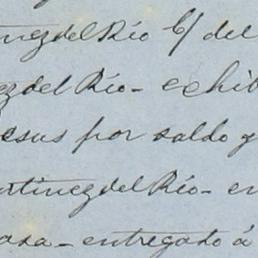 inez del Río C/ del
ez del Río- echib
esus por saldo g
artinez del Río- en
asa- entregado á